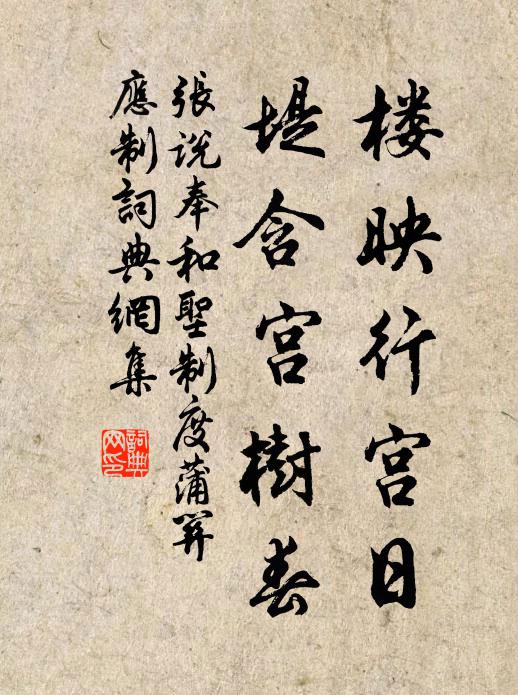 楼映行宫日
堤含宫樹春
張说奉和聖制度蒲關
應制詞典網集
詞典網印